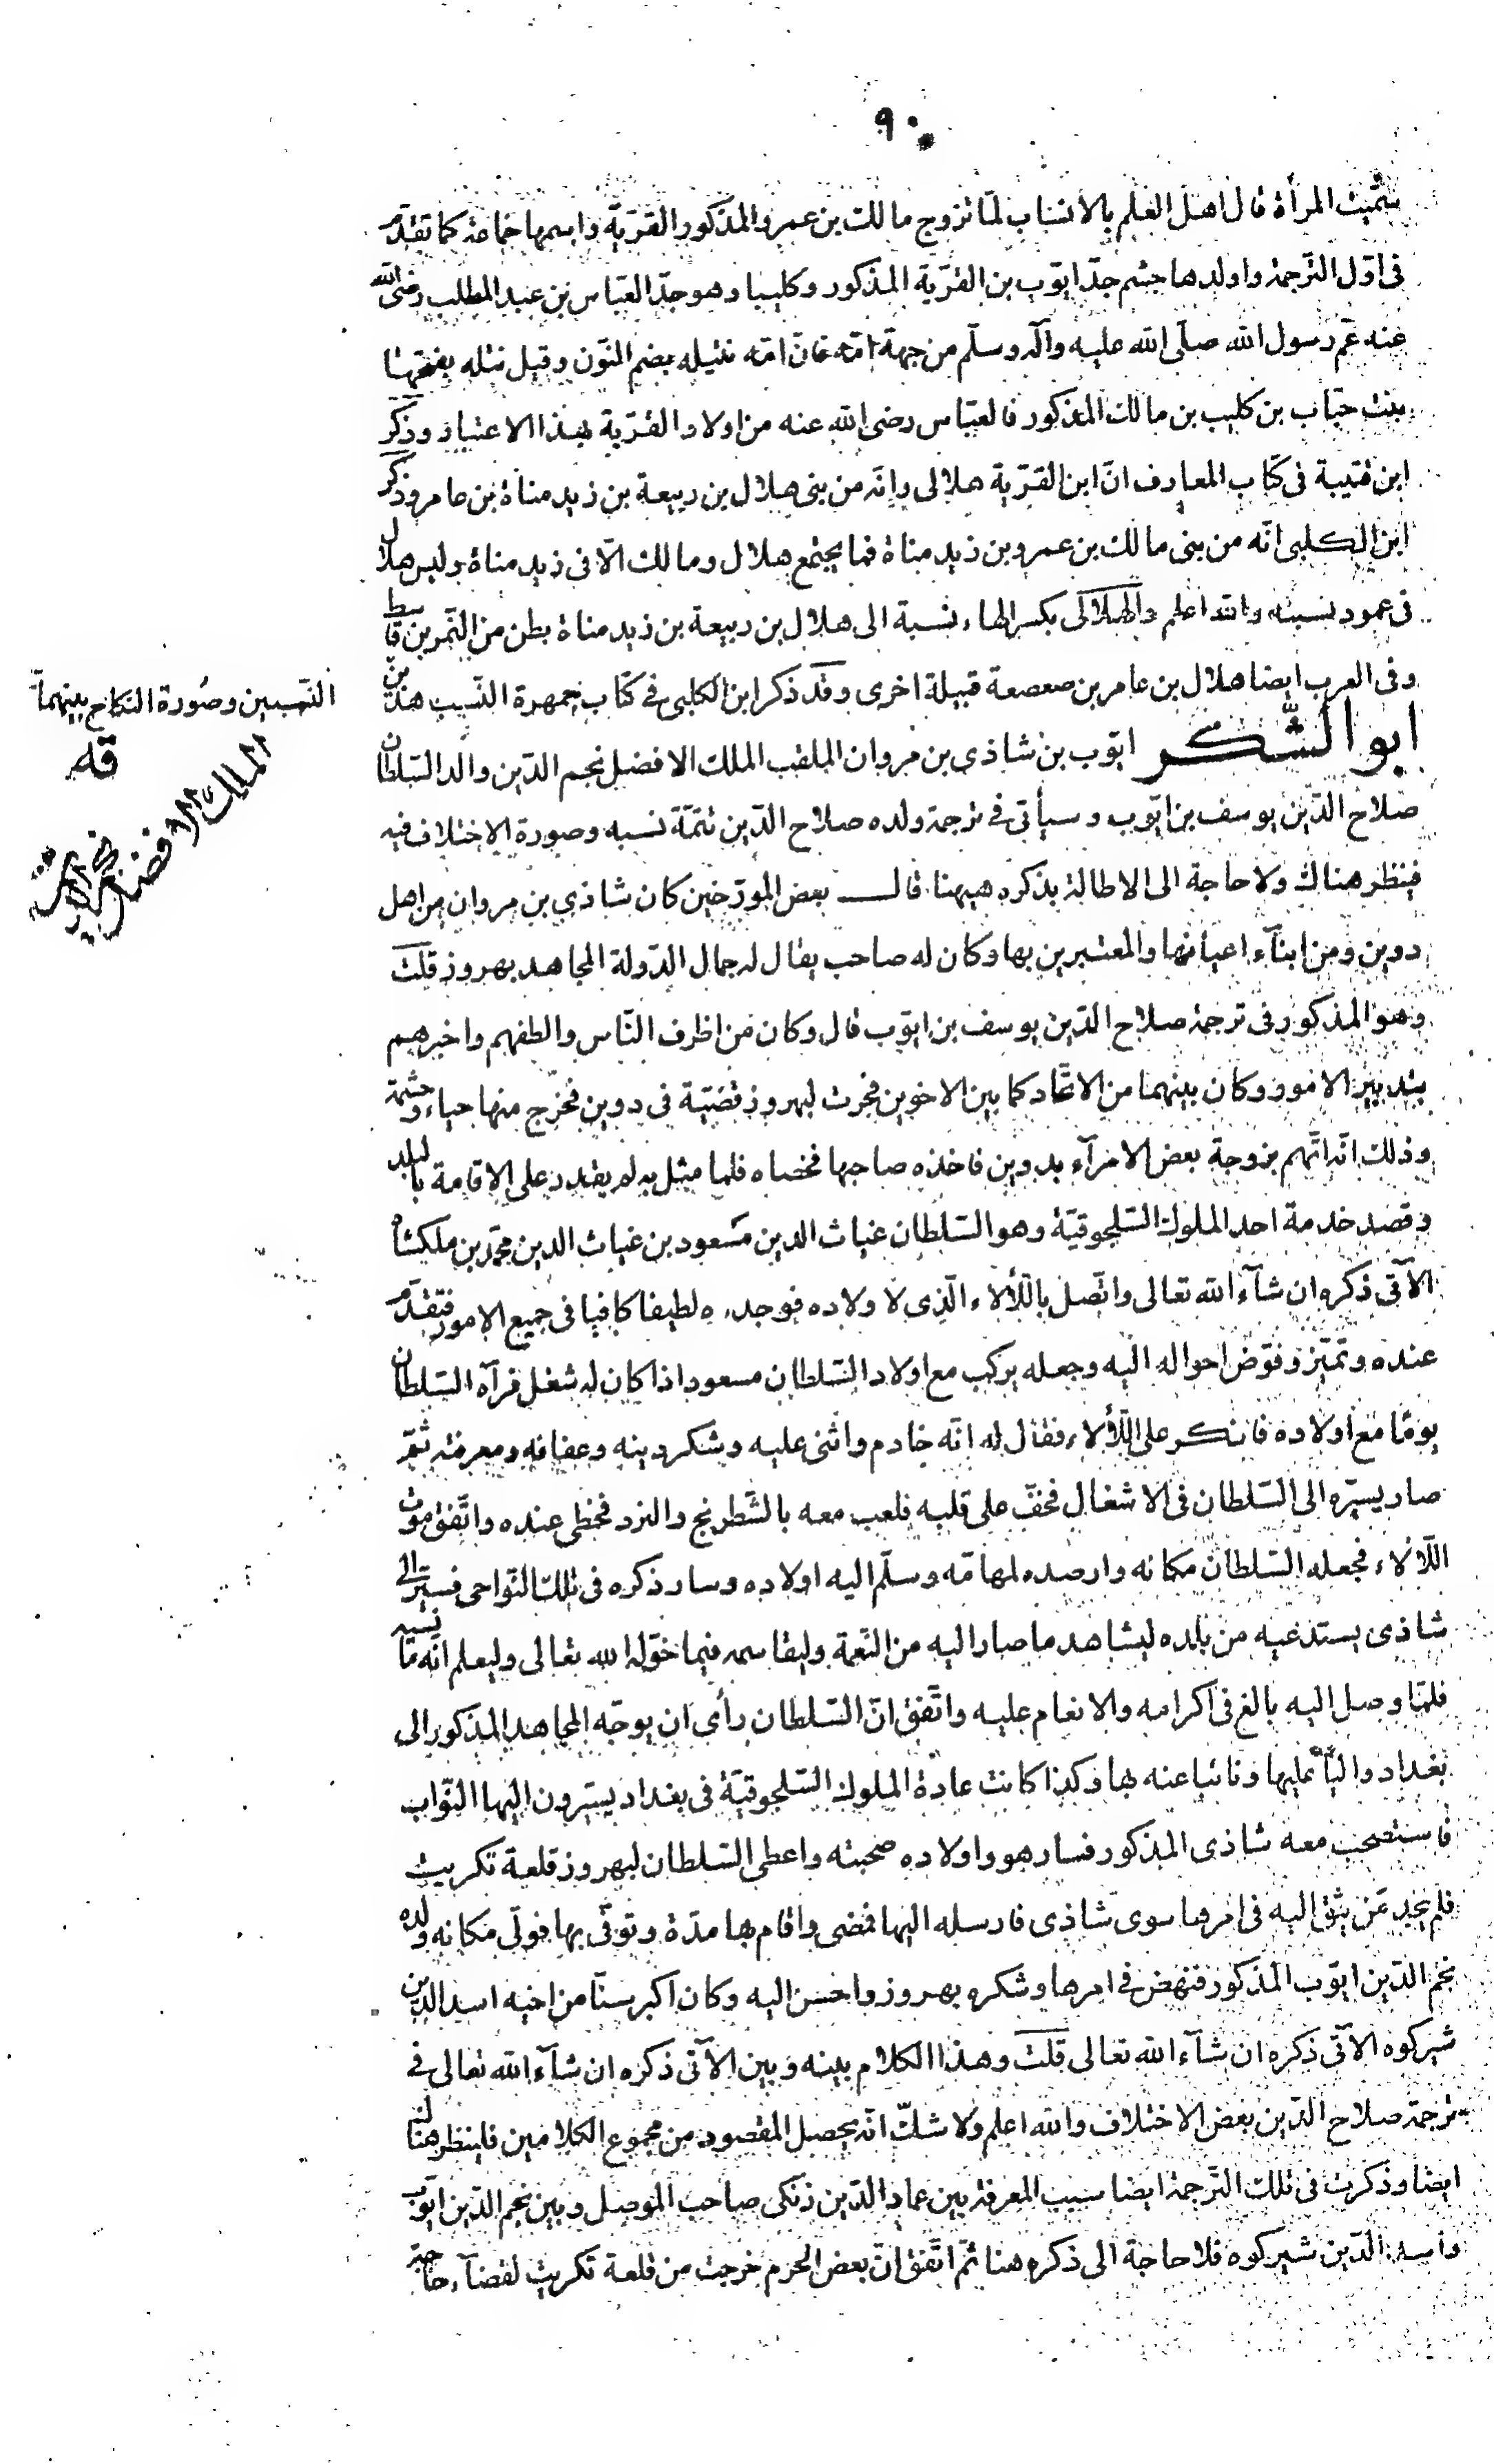 ٩٠
سمّيت المرأة قال اهل العلم بالانساب لمّا تزوج مالك بن عمرو المذكور القرّيّة واسمها خماعة كما تقدّم
فى اوّل التّرجمة واولدها جشم جدّ ايّوب بن القرّية المذكور وكليبا وهو جدّ العبّاس بن عبد المطلب رضى الله
عنه عمّ رسول الله صلّى الله عليه وآله وسلّم من جهة امّه فانّ امّه نثيله بضم النّون وقيل نثله بفتحها
بنت حباب بن كليب بن مالك المذكور فالعبّاس رضى الله عنه من اولاد القرّية بهذا الاعتبار وذكر
ابن قتيبة فى كتاب المعارف انّ ابن القرّية هلالى وانّه من بنى هلال بن ربيعة بن زيد مناة بن عامر وذكر
ابن الكلبى انّه من بنى مالك بن عمرو بن زيد مناة فما يجتمع هلال ومالك الّا فى زيد مناة وليس هلال
فى عمود نسبه والله اعلم والهلالى بكسر الهاء نسبة الى هلال بن ربيعة بن زيد مناة بطن من النّمر بن قاسط
وفى العرب ايضا هلال بن عامر بن صعصعة قبيلة اخرى وقد ذكر ابن الكلبى فى كتاب جمهرة النّسب هذين
النّسبين وصورة النكاح بينهما
قه
الملك الافضل نجم الدّين
ابو الشّكر ايّوب بن شاذى بن مروان الملقب الملك الافضل نجم الدّين والد السّلطان
صلاح الدّين يوسف بن ايّوب وسيأتى فى ترجمة ولده صلاح الدّين تتمّة نسبه وصورة الاختلاف فيه
فينظر هناك ولا حاجة الى الاطالة بذكره هيهنا قال بعض المورّخين كان شاذي بن مروان من اهل
دوين ومن ابنآء اعيانها والمعتبرين بها وكان له صاحب يقال له جمال الدّولة المجاهد بهروز قلت
وهو المذكور فى ترجمة صلاح الدّين يوسف بن ايّوب قال وكان من اظرف النّاس والطفهم واخبرهم
بتدبير الامور وكان بينهما من الاتّحاد كما بين الاخوين فجرت لبهروز قضيّة فى دوين فخرج منها حياء وحشمة
وذلك انّه اتّهم بزوجة بعض الامرآء بدوين فاخذه صاحبها فخصاه فلما مثل به لم يقدر على الاقامة بالبلد
وقصد خدمة احد الملوك السّلجوقيّة وهو السّلطان غياث الدين مسعود بن غياث الدين محمّد بن ملكشاه
الآتى ذكره ان شآء الله تعالى واتّصل باللّألاء الّذى لاولاده فوجده لطيفا كافيا فى جميع الامور فتقدّم
عنده وتميّز وفوّض احواله اليه وجعله يركب مع اولاد السّلطان مسعود اذا كان له شغل فرآه السّلطان
يومًا مع اولاده فانكر على اللّألاء فقال له انّه خادم واثنى عليه وشكر دينه وعفافه ومعرفته ثمّ
صار يسيّره الى السّلطان فى الاشغال فخفّ على قلبه فلعب معه بالشّطرنج والنرد فحظى عنده واتّفق موت
اللّالاء فجعله السّلطان مكانه وارصده لمهامّه وسلّم اليه اولاده وسار ذكره فى تلك النّواحى فسيّر الى
شاذى يستدعيه من بلده ليشاهد ما صار اليه من النّعمة وليقاسمه فيما خوّله الله تعالى وليعلم انّه ما نسيه
فلمّا وصل اليه بالغ فى اكرامه والانعام عليه واتّفق انّ السّلطان رأى ان يوجّه المجاهد المذكور الى
بغداد واليًا عليها ونائبا عنه بها وكذا كانت عادة الملوك السّلجوقيّة فى بغداد يسيّرون اليها النّواب
فاستصحب معه شاذى المذكور فسار هو واولاده صحبته واعطى السّلطان لبهروز قلعة تكريت
فلم يجد من يثق اليه فى امرها سوى شاذى فارسله اليها فمضى واقام بها مدّة وتوفّى بها فولّى مكانه ولده
نجم الدّين ايّوب المذكور فنهض فى امرها وشكره بهروز واحسن اليه وكان اكبر سنّا من اخيه اسد الدّين
شيركوه الآتى ذكره ان شآء الله تعالى قلت وهذا الكلام بينه وبين الآتى ذكره ان شآء الله تعالى فى
ترجمة صلاح الدّين بعض الاختلاف والله اعلم ولا شكّ انّه يحصل المقصود من مجموع الكلامين فلينظر هنالك
ايضا وذكرت فى تلك التّرجمة ايضا سبب المعرفة بين عماد الدّين زنكى صاحب الموصل وبين نجم الدّين ايّوب
واسد الدّين شيركوه فلا حاجة الى ذكره هنا ثمّ اتّفق انّ بعض الحرم خرجت من قلعة تكريت لقضآء حاجة